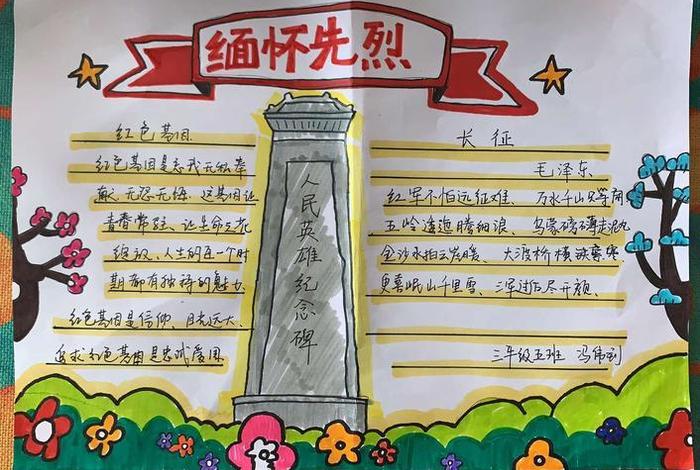 缅怀先烈
红色基因
红色基因是忘我无私奉
献、无怨无悔。这基因让
青春常驻、让生命之花
绽放、人生的每一个时
期都有独特的魅力
红色基因是信仰、目光远大、
追求红色基因是忠诚爱国
人民英雄纪念碑
长征
毛泽东
红军不怕远征难、 万水千山只等闲
五岭逶迤腾细浪、 乌蒙磅礴走泥丸
金沙水拍云崖暖、 大渡桥横铁索寒
更喜岷山千里雪、 三军过后尽开颜、
三年级五班 冯